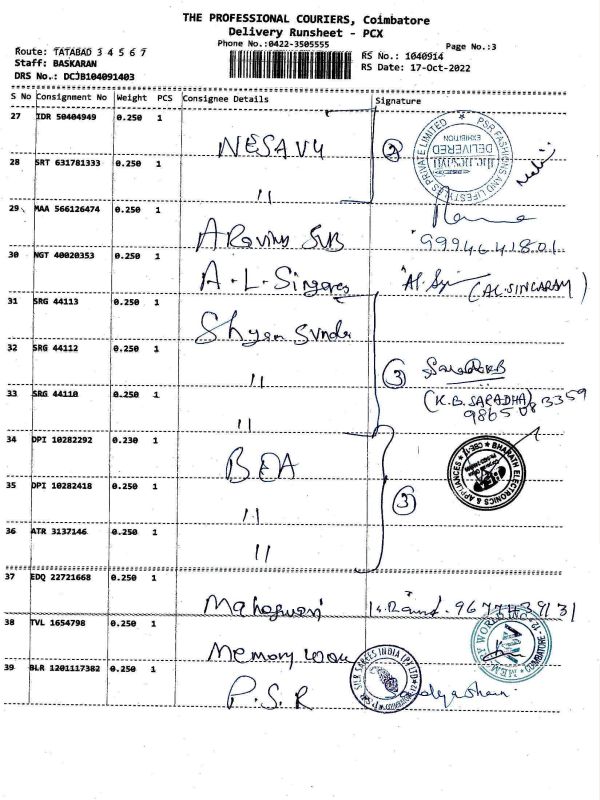 THE PROFESSIONAL COURIERS, Coimbatore
Delivery Runsheet - PCX
Phone No.:0422-3505555
Page No.:3
Route: TATABAD 3 4 5 6 7
RS No.: 1040914
Staff: BASKARAN
RS Date: 17-Oct-2022
DRS No.: DCJB104091403
S No Consignment No Weight PCS Consignee Details Signature
27 IDR 50404949 0.250 1
NESAVU 2
PSR FASHIONS AND LIFESTYLES PRIVATE LIMITED
DELIVERED
EXHIBITION
28 SRT 631781333 0.250 1
11
29 MAA 566126474 0.250 1
Aravind SUB 9994641801
30 NGT 40020353 0.250 1
A.L.Singares (AL.SINGARAM)
31 SRG 44113 0.250 1
Shyam Sunder
32 SRG 44112 0.250 1
11 3
33 SRG 44110 0.250 1
(K.B.SARADHA)
9865083359
11
34 DPI 10282292 0.230 1
BEA
BHARATH ELECTRONICS & APPLIANCES CBE-12
35 DPI 10282418 0.250 1
11 3
36 ATR 3137146 0.250 1
11
37 EDQ 22721668 0.250 1
Maheswari 9677439131
38 TVL 1654798 0.250 1
Memory World
MEMORY WORLD INC
COIMBATORE-12
39 BLR 1201117382 0.250 1
P.S.R
PSR SILK SAREES INDIA (P) LTD